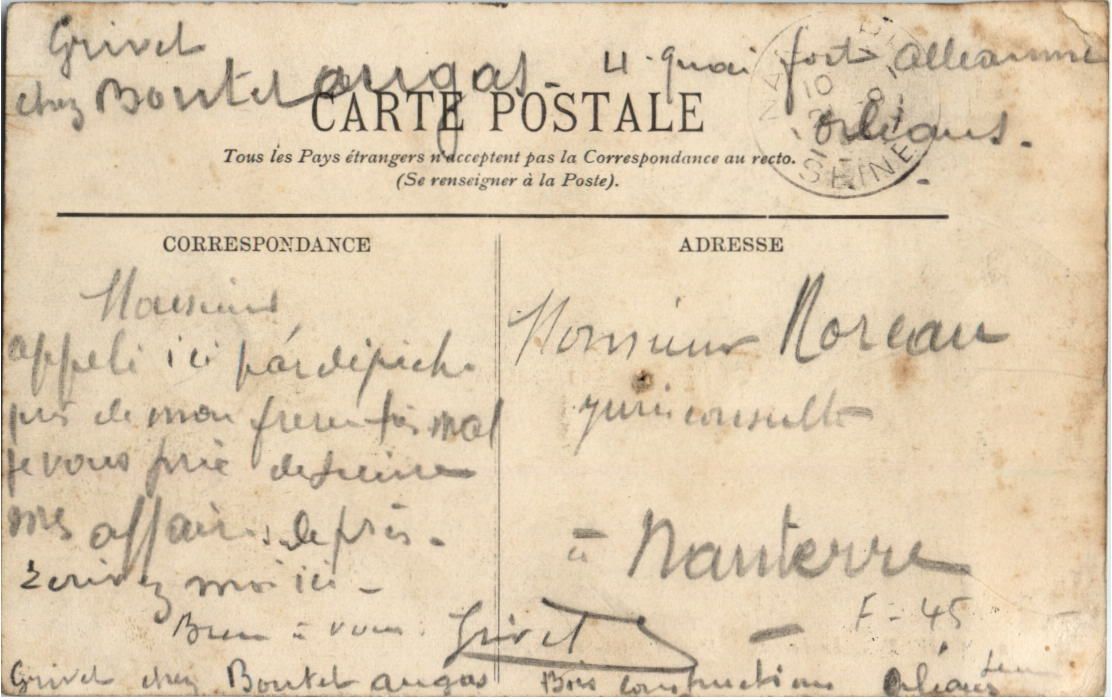 Grivet
chez Boutet augas - 4 quai fort alleaume
Orléans.
CARTE POSTALE
Tous les Pays étrangers n'acceptent pas la Correspondance au recto.
(Se renseigner à la Poste).
NA
10
SEINE
CORRESPONDANCE
Monsieur
appelé ici par dépêche
près de mon frere très mal
je vous prie de suivre
mes affaires de près -
Ecrivez moi ici -
Bien à vous. Grivet
ADRESSE
Monsieur Moreau
jurisconsulte
à Nanterre
F - 45
Grivet chez Boutet augas Bois constructions Orléans